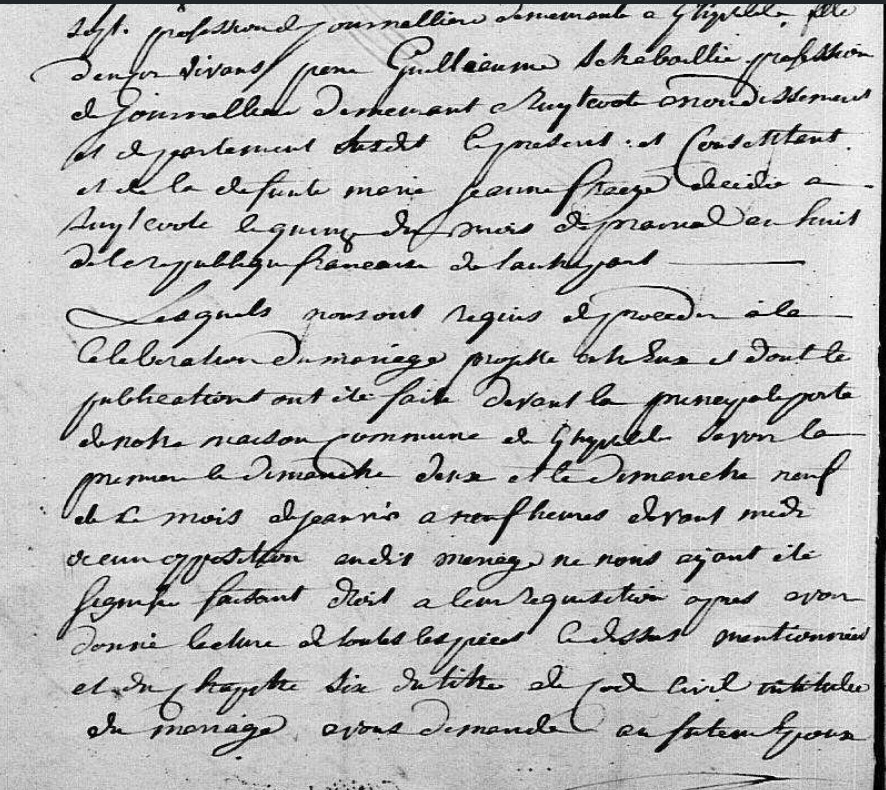 sept. profession de journalliere demeurante a Ghyvelde, fille
den son vivans pere Guilliaume Schabaillie profession
de Journallier demeurant a Zuytcoote arrondissement
et departement susdit le present et Consettant.
et de la defunte marie jeanne decidée a
Zuytcoote le quinze du mois de prarial an huit
de la republique francaise de lautre part
Lesquels nous ont requis de proceder à la
Celebration du mariage projetté entre Eux et dont le
publications ont été faite devant la principale porte
de notre maison Commune de Ghyvelde savoir la
premiere le dimanche deux et le dimanche neuf
de Ce mois de janvier a neuf heures devant midi
aucun opposition audit mariage ne nous ayant été
signifie faisant droit a leur requisition apres avoir
donné lecture de toutes les pieces Ci dessus mentionnées
et du Chapitre six du titre de Code Civil intitulée
du mariage avons demandé au futur Epoux